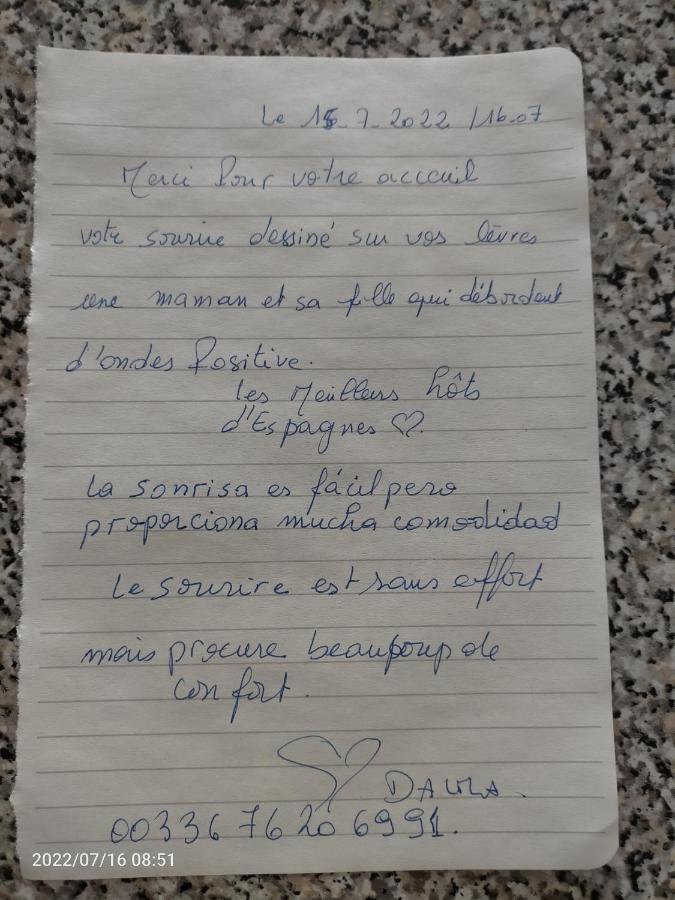 Le 15-7-2022 /16-07
Merci Pour votre acceuil
votre sourire dessiné sur vos lèvres
une maman et sa fille qui débordent
d'ondes Positive.
les Meilleurs hôts
d'Espagnes ♡.
La sonrisa es fácil pero
proporciona mucha comodidad
Le sourire est sans effort
mais procure beaucoup de
confort.
00336 76 20 69 91.
2022/07/16 08:51